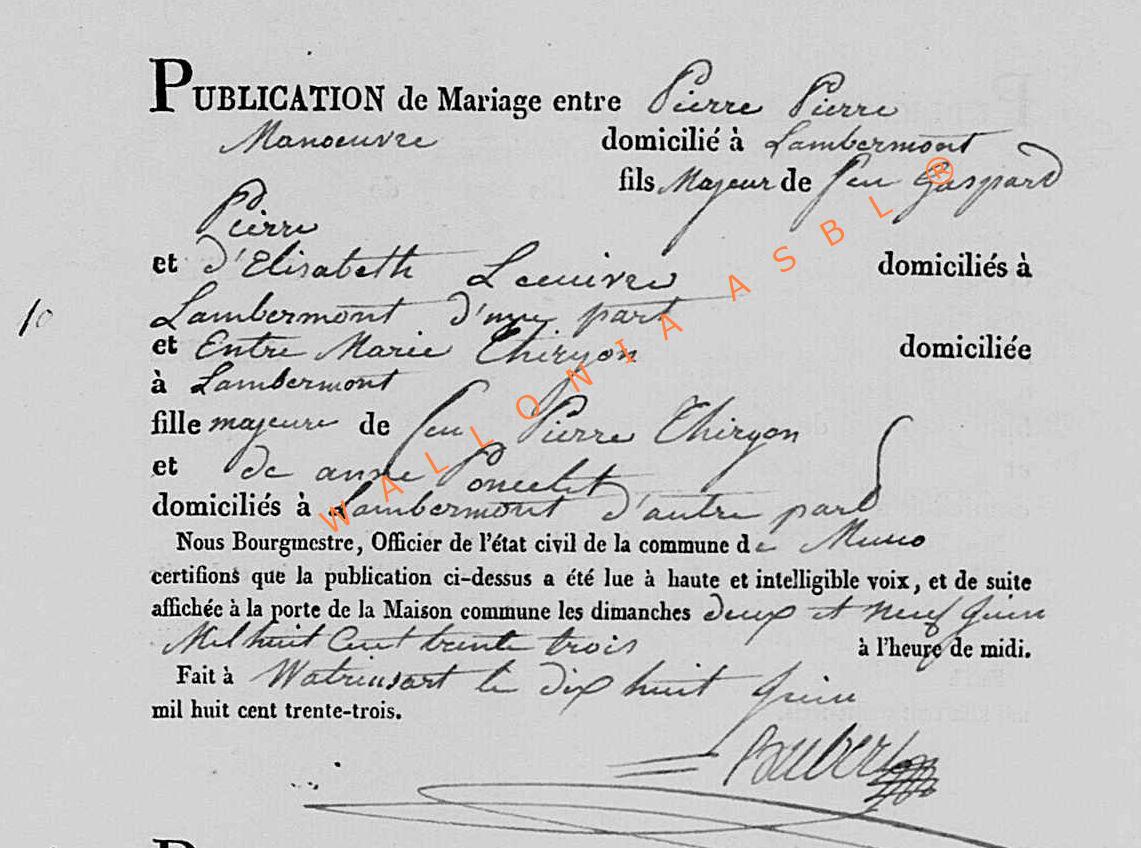 PUBLICATION de Mariage entre Pierre Pierre
Manoeuvre domicilié à Lambermont
fils Majeur de feu Gaspard
Pierre
et d'Elisabeth domiciliés à
Lambermont d'une part
et Entre Marie Thiryon domiciliée
à Lambermont
fille majeure de feu Pierre Thiryon
et de anne Poncelet
domiciliés à Lambermont d'autre part
Nous Bourgmestre, Officier de l'état civil de la commune de Muno
certifions que la publication ci-dessus a été lue à haute et intelligible voix, et de suite
affichée à la porte de la Maison commune les dimanches deux et neuf Juin
Mil huit Cent trente trois à l'heure de midi.
Fait à Watrinsart le dix huit Juin
mil huit cent trente-trois.
10
WALLONIA ASBL ®